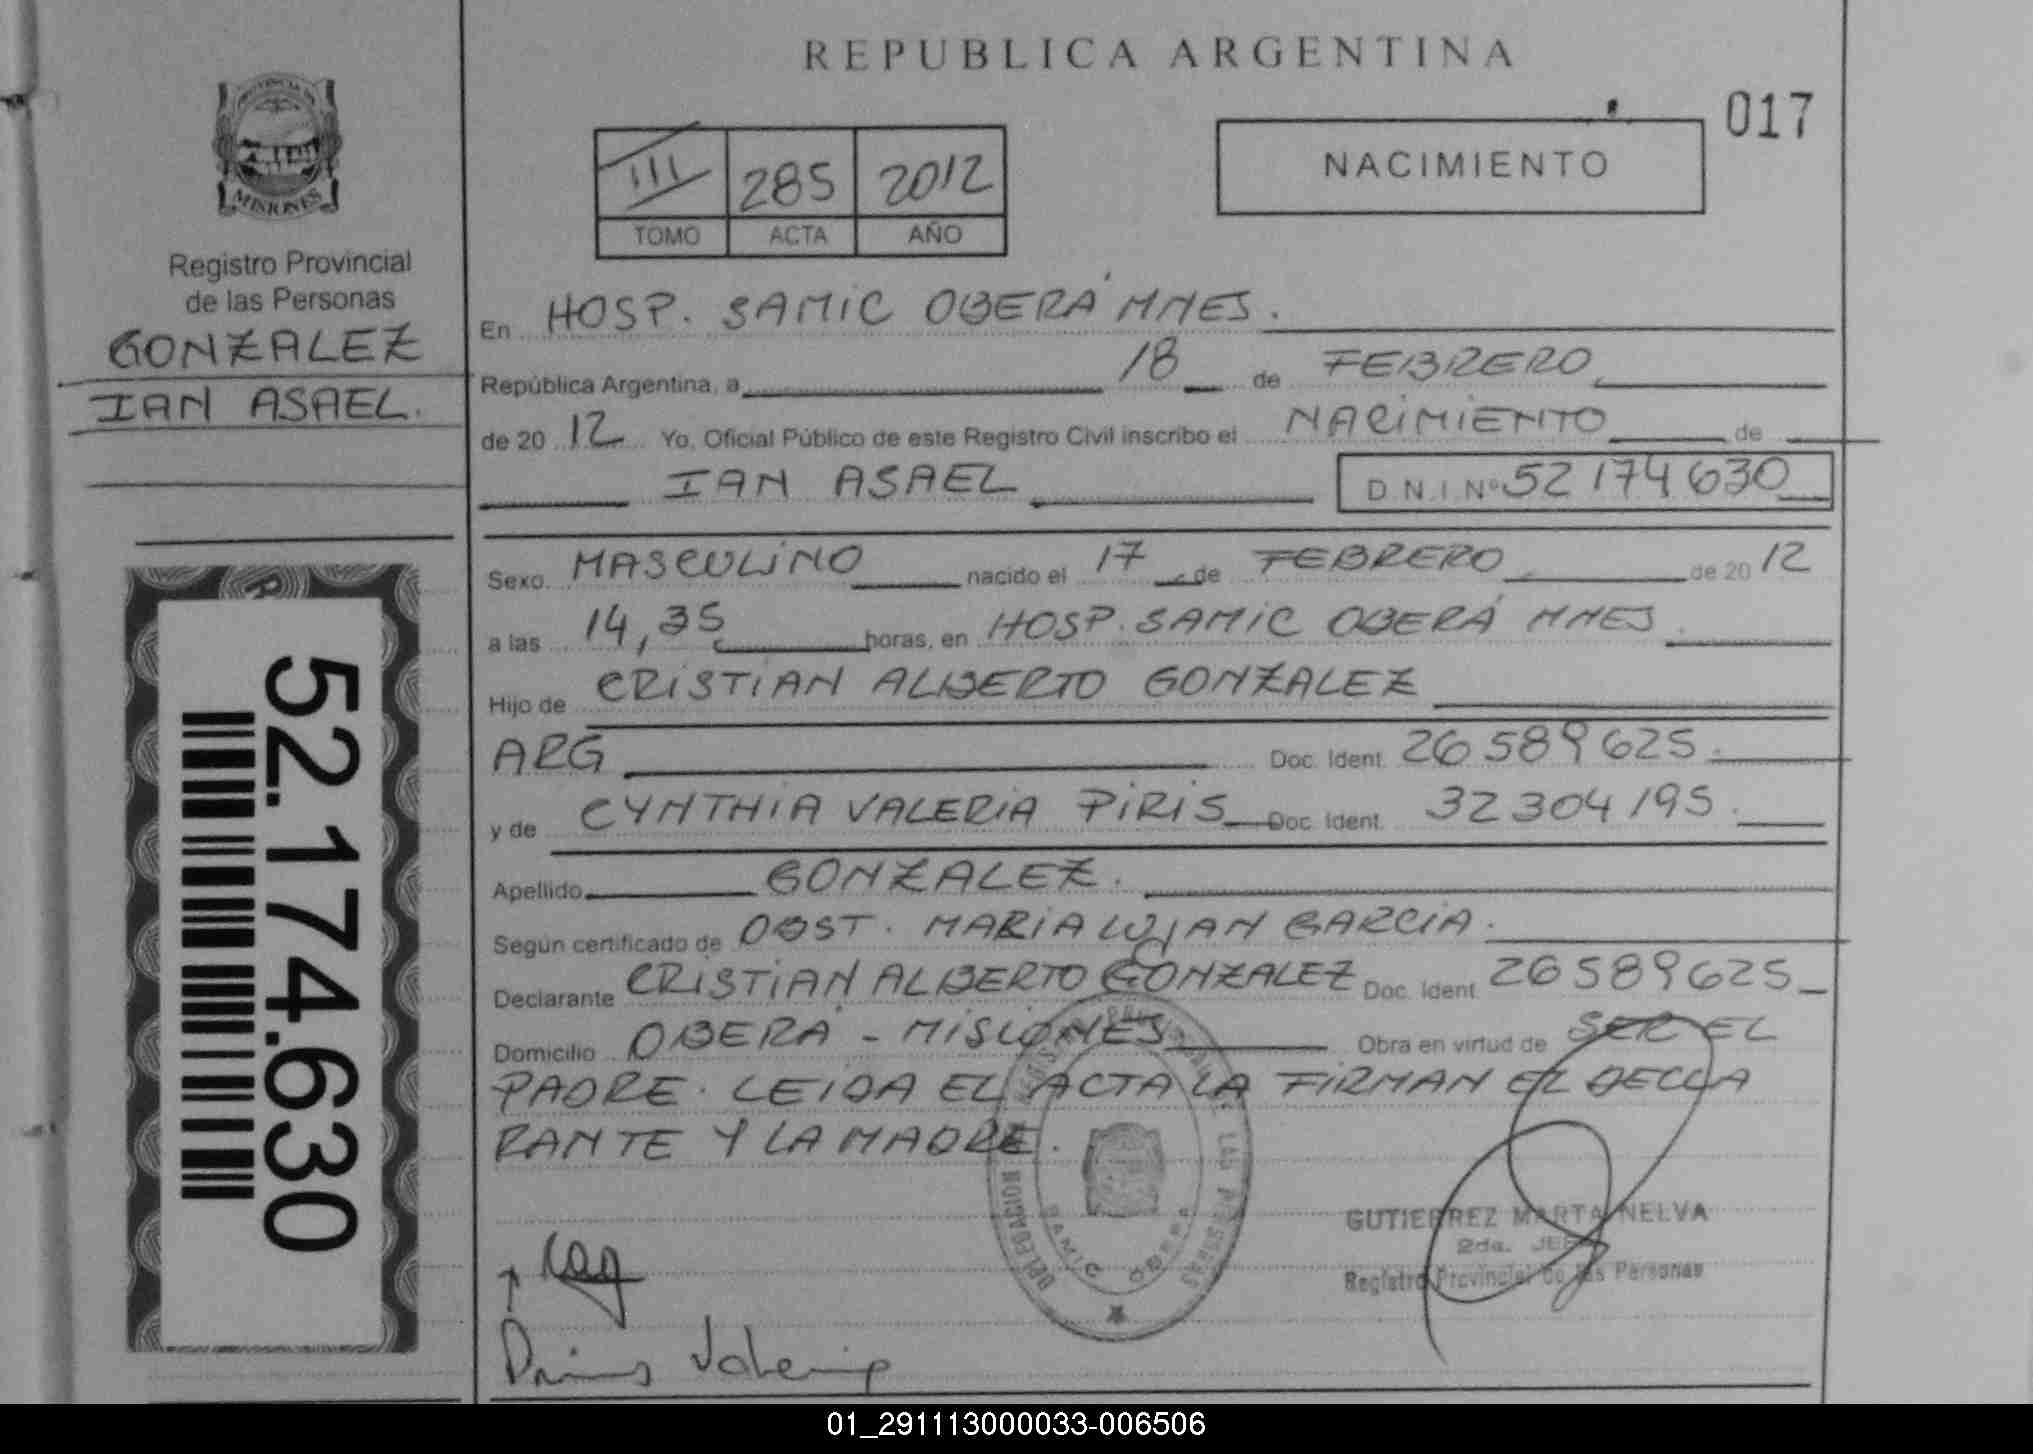 REPUBLICA ARGENTINA
017
NACIMIENTO
III 285 2012
TOMO ACTA AÑO
PROVINCIA DE
MISIONES
Registro Provincial
de las Personas
GONZALEZ
IAN ASAEL.
52.174.630
En HOSP. SAMIC OBERÁ MNES.
República Argentina, a 18 de FEBRERO
de 2012 Yo, Oficial Público de este Registro Civil inscribo el NACIMIENTO de
IAN ASAEL D.N.I. Nº 52174630
Sexo MASCULINO nacido el 17 de FEBRERO de 2012
a las 14,35 horas, en HOSP. SAMIC OBERÁ MNES
Hijo de CRISTIAN ALBERTO GONZALEZ
ARG Doc. Ident. 26589625.
y de CYNTHIA VALERIA PIRIS Doc. Ident. 32304195.
Apellido GONZALEZ.
Según certificado de OBST. MARIA LUJAN GARCIA.
Declarante CRISTIAN ALBERTO GONZALEZ Doc. Ident. 26589625
Domicilio OBERÁ - MISIONES Obra en virtud de SER EL
PADRE. LEIDA EL ACTA LA FIRMAN EL DECLA
RANTE Y LA MADRE.
DELEGACION SAMIC OBERA
GUTIERREZ MARTA NELVA
2da. JEFE
Registro Provincial de las Personas
01_291113000033-006506